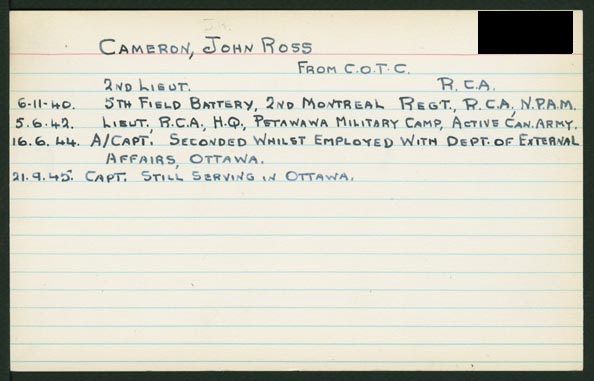 J.R.
CAMERON, JOHN ROSS
FROM C.O.T.C.
2ND LIEUT. R.C.A.
6-11-40. 5TH FIELD BATTERY, 2ND MONTREAL REGT., R.C.A., N.P.A.M.
5.6.42. LIEUT., R.C.A., H.Q., PETAWAWA MILITARY CAMP, ACTIVE CAN. ARMY.
16.6.44. A/CAPT. SECONDED WHILST EMPLOYED WITH DEPT. OF EXTERNAL
AFFAIRS, OTTAWA.
21.9.45. CAPT. STILL SERVING IN OTTAWA.